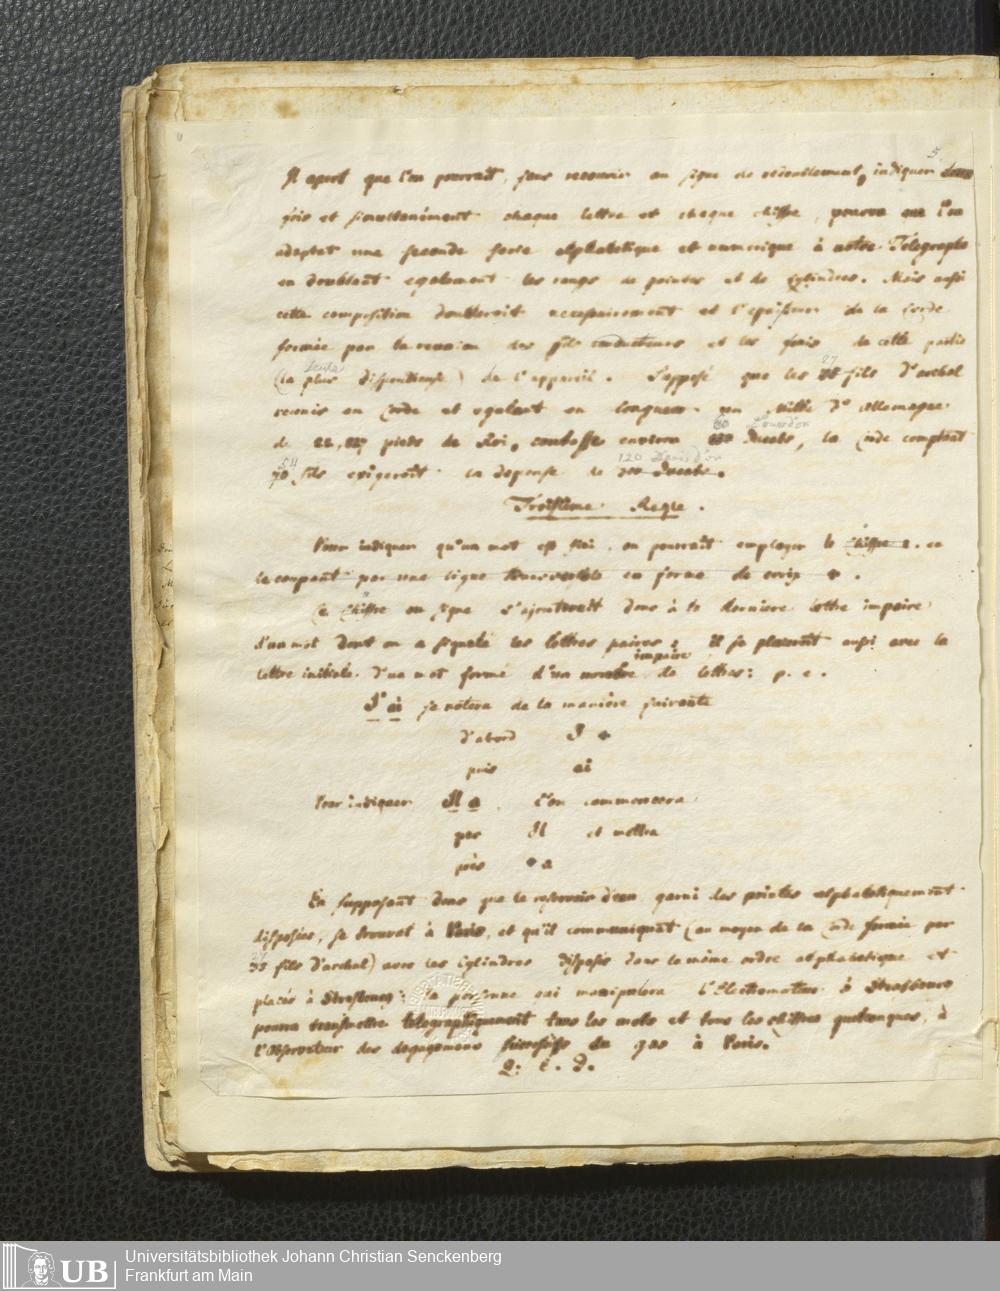 5.
Il apert que l'on pourrait, sans recourir au signe de redoublement, indiquer deux
fois et simultanément chaque lettre et chaque chiffre, pourvu que l'on
adaptat une seconde serie alphabetique et numerique à notre Télegraphe
en doublant egalement les rangs de pointes et de cylindres. Mais aussi
cette composition doubleroit necessairement et l'epaisseur de la Corde
formée par la reunion des fils conducteurs et les frais de cette partie
(la plus dispendieuse) de l'appareil. Supposé que les 27 fils d'archal
reunis en Corde et egalant en longueur un Mille d'Allemagne
de 22,827 pieds de Roi, coutasse environ 60 Louisd'or Ducats, la Corde comptant
54 70 fils exigeroit la depense de 120 Louisd'or Ducats.
Troisième Regle.
Pour indiquer qu'un mot est fini, on pourrait employer le chiffre 2. en
le coupant par une ligne transversale en forme de croix +.
Ce Chiffre ou signe s'ajouterait donc à la derniere lettre impaire
d'un mot dont on a signalé les lettres paires; il se placeroit aussi avec la
lettre initiale d'un mot formé d'un nombre impaire de lettres: p. e.
J'ai se notera de la manière suivante
d'abord J +
puis ai
Pour indiquer Il a, l'on commencera
par Il et mettra
près + a
En supposant donc que le reservoir d'eau garni des pointes alphabetiquement
disposées, se trouvat à Paris, et qu'il communiquat (au moyen de la Corde formée par
35 fils d'archal) avec les Cylindres disposés dans le même ordre alphabetique et
placés à Strasbourg: la personne qui manipulera l'Electromoteur à Strasbourg
pourra transmettre telegraphiquement tous les mots et tous les chiffres quelconques, à
l'Observateur des degagemens successifs du gas à Paris.
Q: E. D.
Universitätsbibliothek Johann Christian Senckenberg
Frankfurt am Main
UB